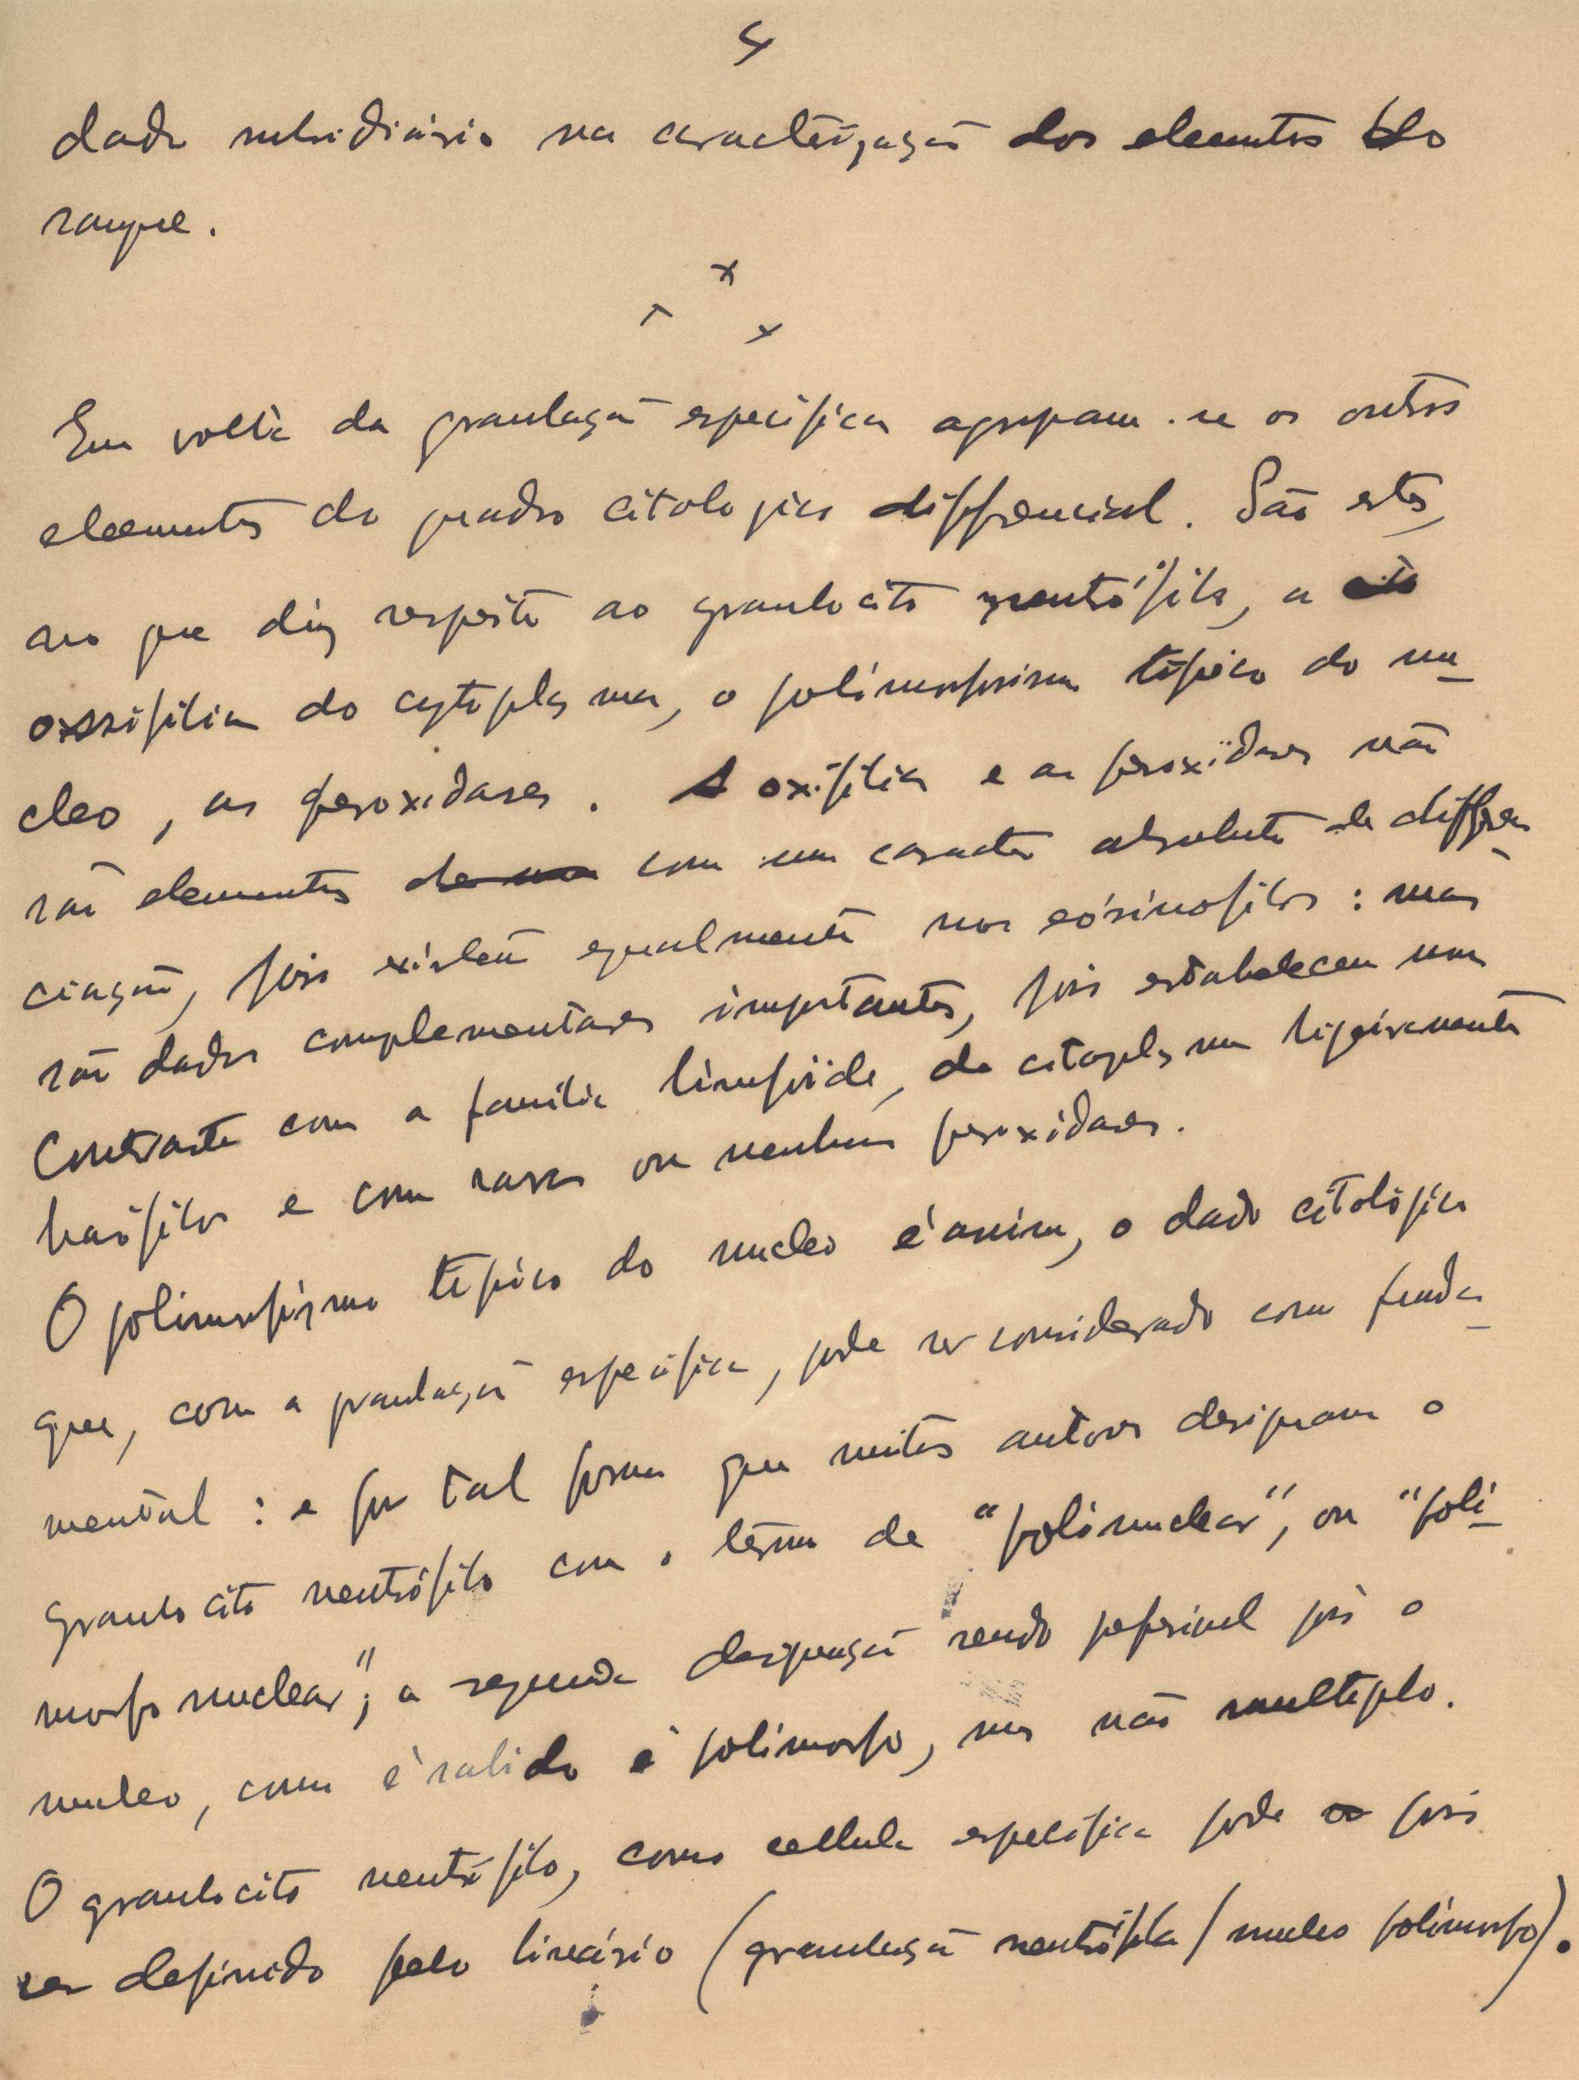 4
dado subsidiário na caracterização dos elementos do
sangue.
x
x x
Em volta da granulação especifica agrupam-se os outros
elementos do quadro citologico differencial. São estes,
no que diz respeito ao granulocito neutrófilo, a
oxifilia do cytoplasma, o polimorfismo tipico do nu-
cleo, as peroxidases. A oxifilia e as peroxidases não
são elementos com um caracter absoluto de differen-
ciação, pois existem egualmente nos eósinofilos: mas
são dados complementares importantes, pois estabelecem um
contraste com a familia limfoïde, de citoplasma ligeiramente
basófilo e com raras ou nenhumas peroxidases.
O polimorfismo tipico do nucleo é assim, o dado citológico
que, com a granulação especifica, pode ser considerado como funda-
mental: e por tal forma que muitos autores designam o
granulocito neutrófilo com o termo de "polinuclear", ou "poli-
morfo nuclear"; a segunda designação sendo preferivel pois o
nucleo, como é sabido é polimorfo, mas não multiplo.
O granulocito neutrófilo, como cellula especifica pode pois
ser definido pelo binário (granulação neutrófila / nucleo polimorfo).